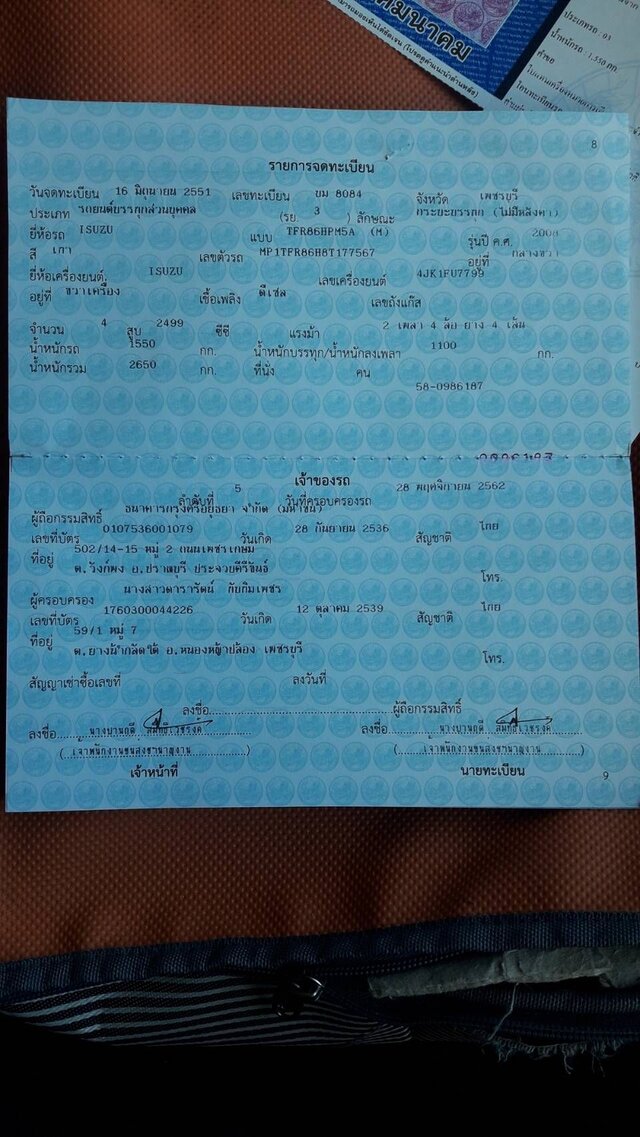 คมนาคม
ประเภทรถ. 01
น้ำหนักรถ. 1,550 กก.
8
รายการจดทะเบียน
วันจดทะเบียน 16 มิถุนายน 2551 เลขทะเบียน ขม 8084 จังหวัด เพชรบุรี
ประเภท รถยนต์บรรทุกส่วนบุคคล (รย. 3 ) ลักษณะ กระบะบรรทุก (ไม่มีหลังคา)
ยี่ห้อรถ ISUZU แบบ TFR86HPM5A (M) รุ่นปี ค.ศ. 2008
สี เทา เลขตัวรถ MP1TFR86H8T177567 อยู่ที่ กลางขวา
ยี่ห้อเครื่องยนต์ ISUZU เลขเครื่องยนต์ 4JK1FU7799
อยู่ที่ ขวาเครื่อง เชื้อเพลิง ดีเซล เลขถังแก๊ส
จำนวน 4 สูบ 2499 ซีซี แรงม้า 2 เพลา 4 ล้อ ยาง 4 เส้น
น้ำหนักรถ 1550 กก. น้ำหนักบรรทุก/น้ำหนักลงเพลา 1100 กก.
น้ำหนักรวม 2650 กก. ที่นั่ง คน
58-0986187
เจ้าของรถ
ลำดับที่ 5 วันที่ครอบครองรถ 28 พฤศจิกายน 2562
ผู้ถือกรรมสิทธิ์ ธนาคารกรุงศรีอยุธยา จำกัด (มหาชน)
เลขที่บัตร 0107536001079 วันเกิด 28 กันยายน 2536 สัญชาติ ไทย
ที่อยู่ 502/14-15 หมู่ 2 ถนนเพชรเกษม
ต.วังก์พง อ.ปราณบุรี ประจวบคีรีขันธ์ โทร.
ผู้ครอบครอง นางสาวดารารัตน์ กับกิมเพชร
เลขที่บัตร 1760300044226 วันเกิด 12 ตุลาคม 2539 สัญชาติ ไทย
ที่อยู่ 59/1 หมู่ 7
ต.ยางน้ำกลัดใต้ อ.หนองหญ้าปล้อง เพชรบุรี โทร.
สัญญาเช่าซื้อเลขที่ ลงวันที่
ลงชื่อ ผู้ถือกรรมสิทธิ์
ลงชื่อ ลงชื่อ
(เจ้าพนักงานขนส่งชำนาญงาน) (เจ้าพนักงานขนส่งชำนาญงาน)
เจ้าหน้าที่ นายทะเบียน
9